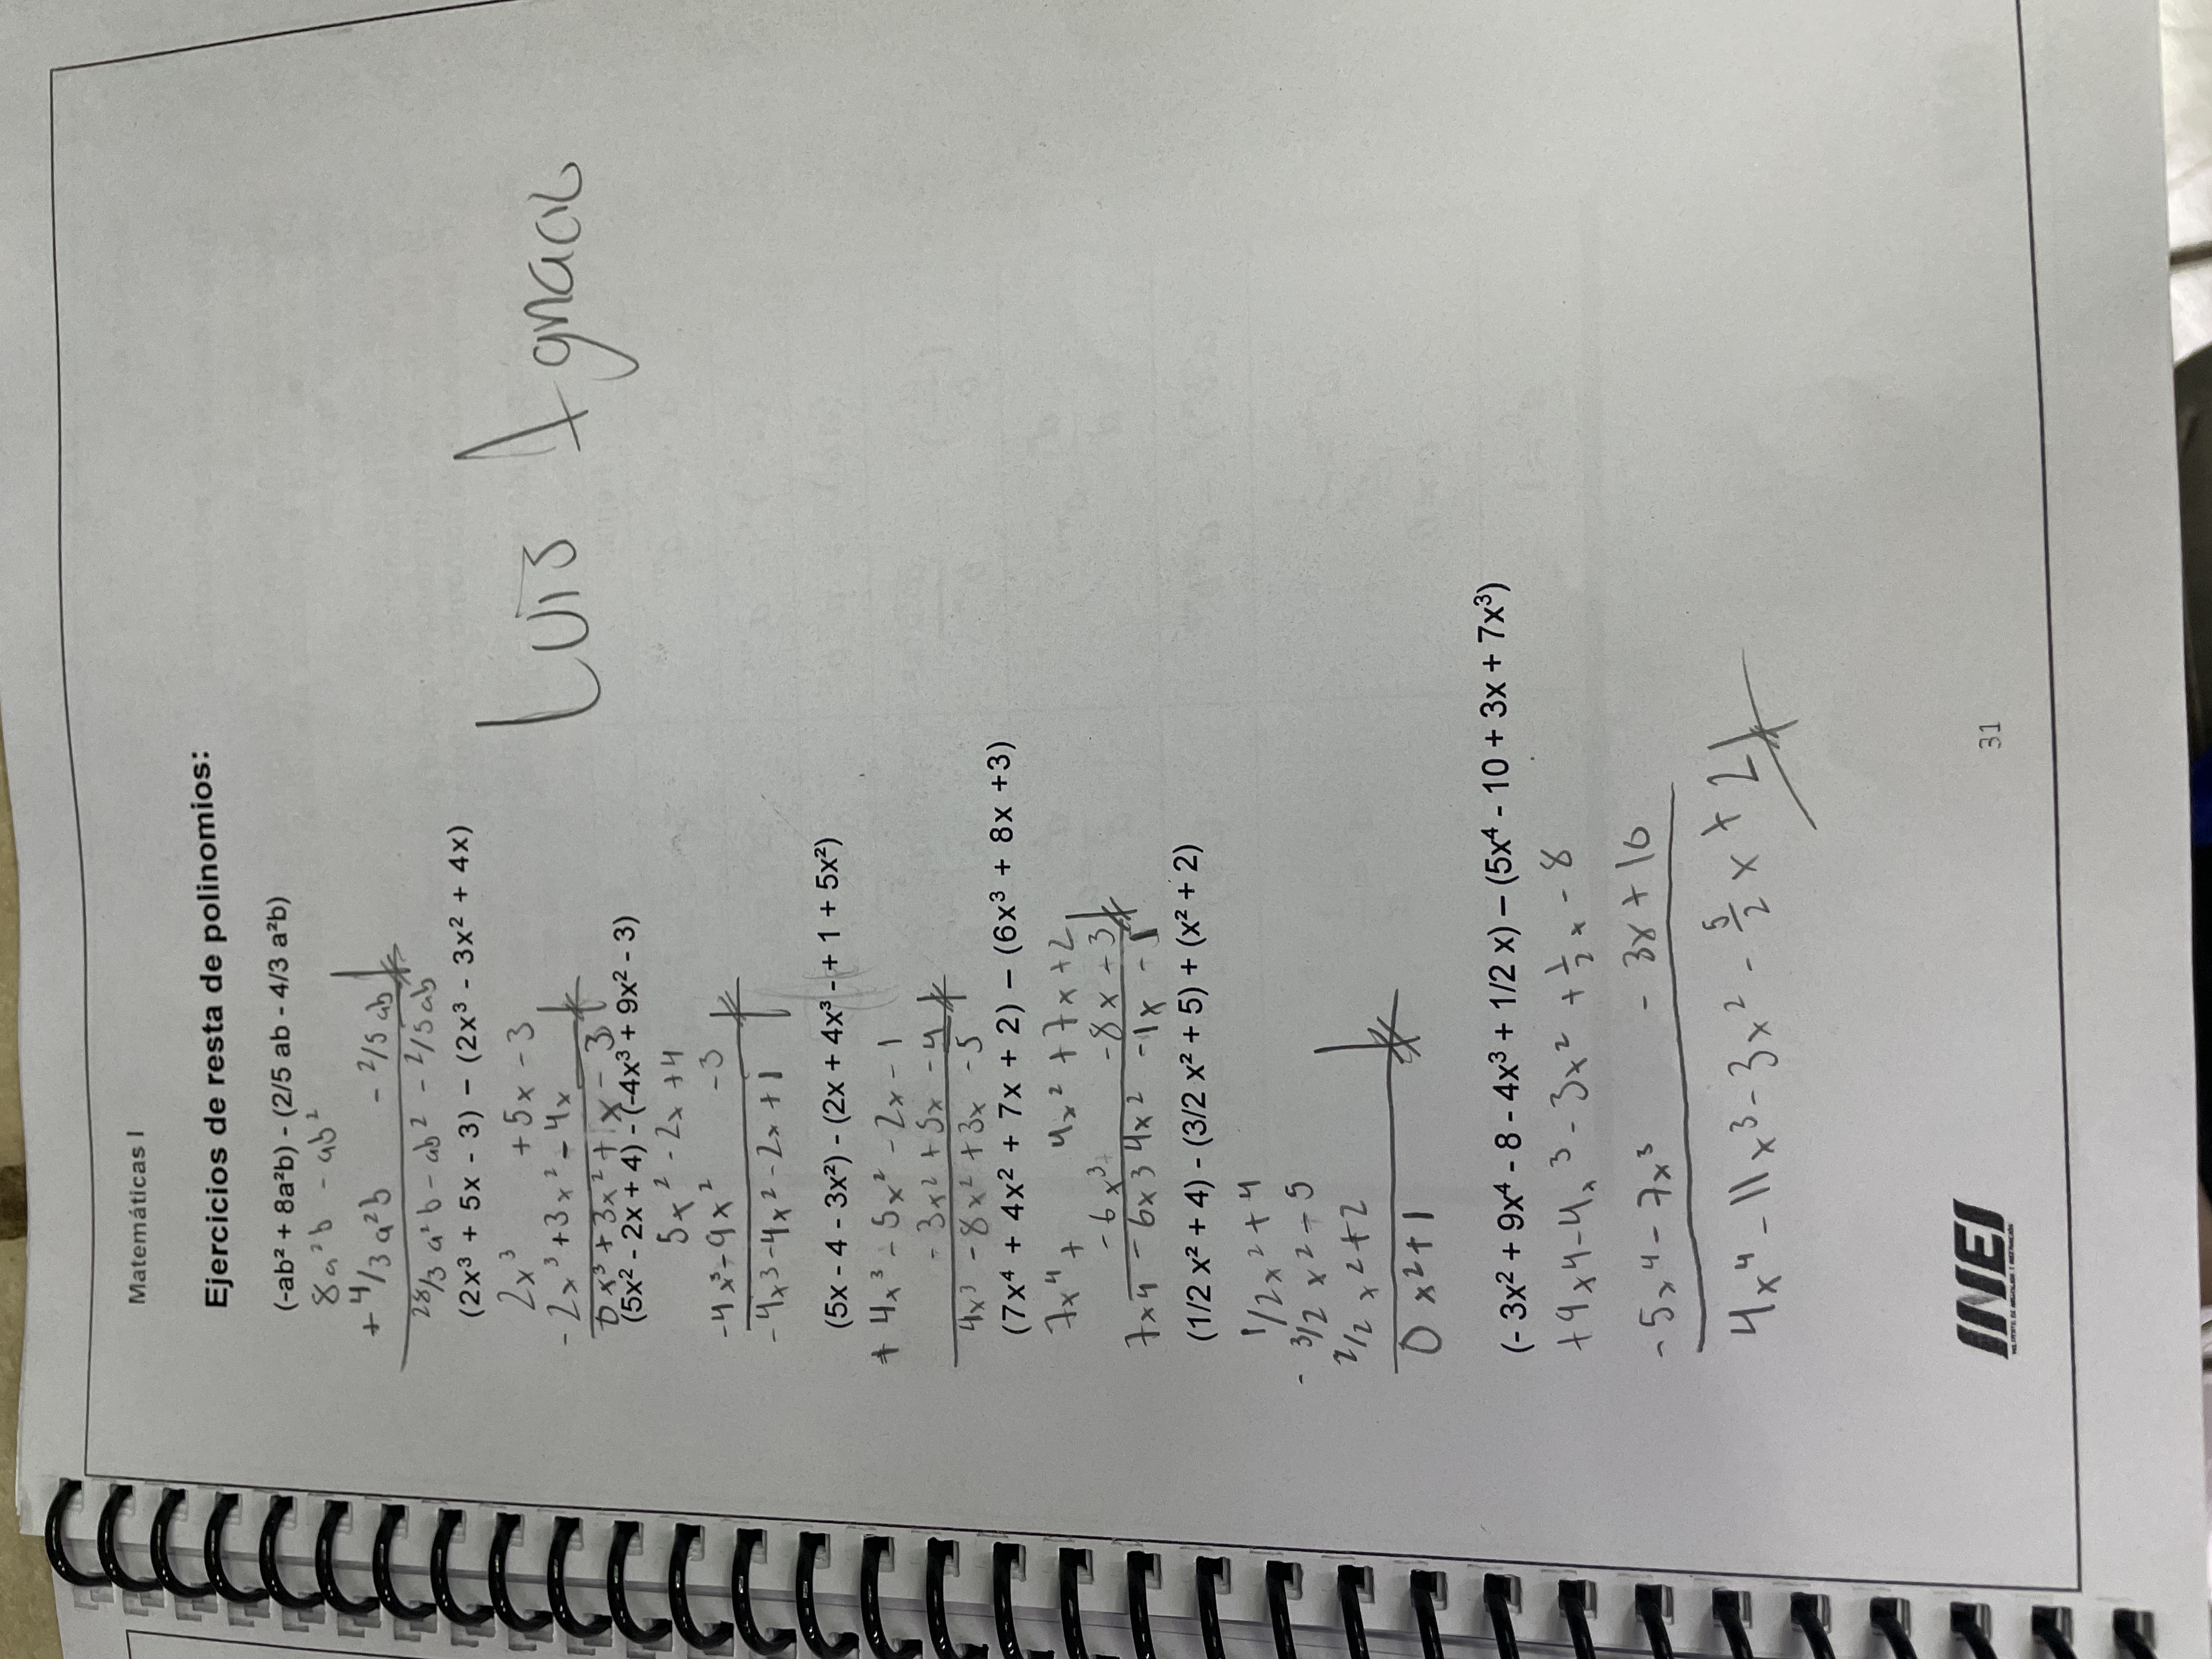 Matemáticas I
Ejercicios de resta de polinomios:
(-ab² + 8a²b) - (2/5 ab - 4/3 a²b)
8a²b - ab²
+ 4/3 a²b - 2/5 ab
28/3 a²b - ab² - 2/5 ab
(2x³ + 5x - 3) – (2x³ - 3x² + 4x)
2x³ + 5x - 3
- 2x³ + 3x² - 4x
0x³ + 3x² + 1x - 3
(5x² - 2x + 4) - (-4x³ + 9x² - 3)
5x² - 2x + 4
-4x³ - 9x² - 3
-4x³ - 4x² - 2x + 1
(5x - 4 - 3x²) - (2x + 4x³ - + 1 + 5x²)
+ 4x³ - 5x² - 2x - 1
- 3x² + 5x - 4
4x³ - 8x² + 3x - 5
(7x⁴ + 4x² + 7x + 2) – (6x³ + 8x +3)
7x⁴ + 4x² + 7x + 2
- 6x³+ - 8x + 3
7x4 - 6x3 4x² - 1x - 1
(1/2 x² + 4) - (3/2 x² + 5) + (x² + 2)
1/2x² + 4
- 3/2 x² - 5
2/2 x² + 2
0 x² + 1
(- 3x² + 9x⁴ - 8 - 4x³ + 1/2 x) – (5x⁴ - 10 + 3x + 7x³)
+ 9x4 - 4x³ - 3x² + 1/2 x - 8
- 5x⁴ - 7x³ - 3x + 10
4x⁴ - 11x³ - 3x² - 5/2 x + 2
Luis Ignacio
INEJ
31